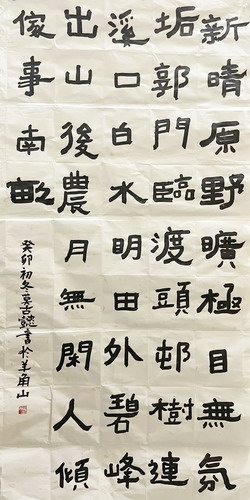 新晴原野曠極目無氛
垢郭門臨渡頭邨樹連
溪口白水明田外碧峰
出山後農月無閑人傾
傢事南畝
癸卯初冬莫古懿書於羊角山